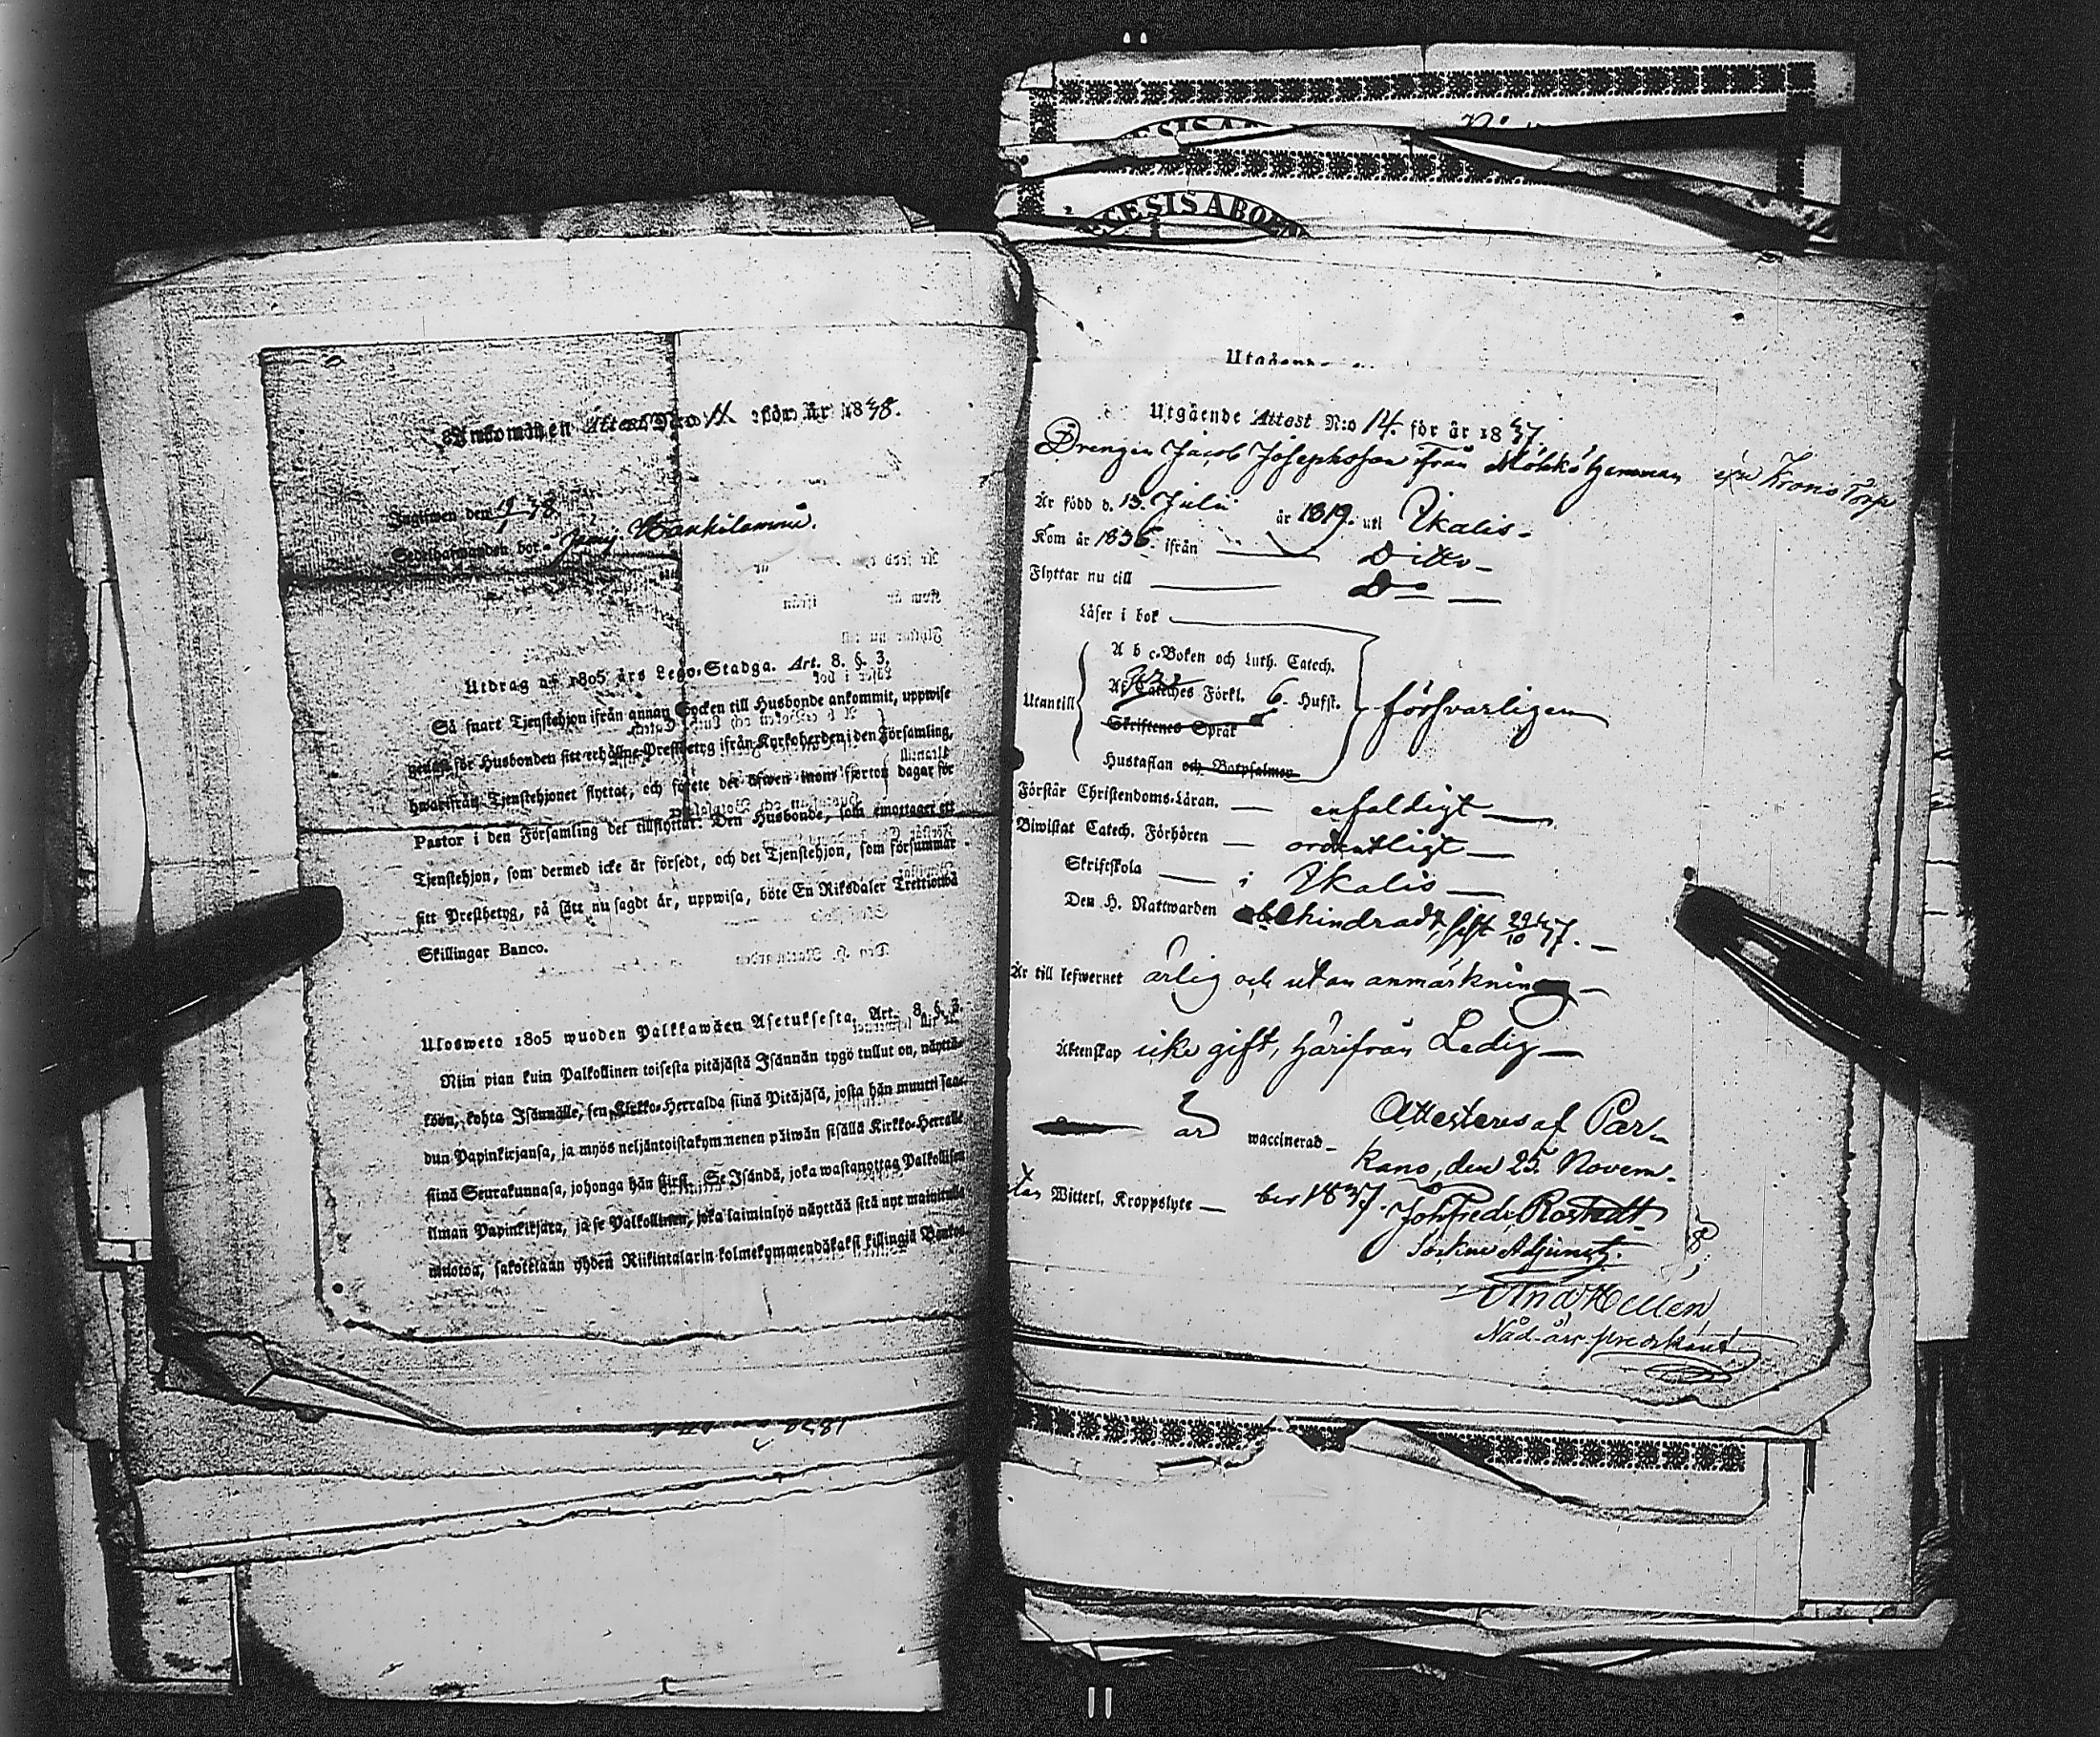 ESIS AB
CESIS ABOE
Ankommen Attest N:o 11 för år 1838.
Ingifwen den 9/1 38
Sedelhafwanden bor
Utdrag af 1805 års Lego-Stadga. Art. 8. §. 3.
Så snart Tjenstehjon ifrån annan Socken till Husbonde ankommit, uppwise
genast för Husbonden sitt erhållne Prestbetyg ifrån Kyrkoherden i den Församling,
hwarifrån Tjenstehjonet flyttat, och förete det äfwen inom fjorton dagar för
Pastor i den Församling det tillflyttar: Den Husbonde, som emottager ett
Tjenstehjon, som dermed icke är försedt, och det Tjenstehjon, som försummar
sitt Prestbetyg, på sätt nu sagdt är, uppwisa, böte En Riksdaler Trettiotwå
Skillingar Banco.
Ulosweto 1805 wuoden Palkkawäen Asetuksesta. Art. 8. §. 3.
Niin pian kuin Palkollinen toisesta pitäjästä Isännän tygö tullut on, näyttä-
köön, kohta Isännälle, sen Kirkko-Herralda siinä Pitäjäsä, josta hän muutti saa-
dun Papinkirjansa, ja myös neljäntoistakymmenen päiwän sisällä Kirkko-Herralle
siinä Seurakunnasa, johonga hän siirsi. Se Isändä, joka wastanottaa Palkollisen
ilman Papinkirjata, ja se Palkollinen, joka laiminlyö näyttää sitä nyt mainitulla
muotoa, sakotetaan yhden Riikintalarin kolmekymmendäkaksi killingiä Bankos
Utgående
Utgående Attest N:o 14. för år 1837.
Drengen Jacob Josephsson ifrån
Är född d. 13. Julii år 1819. uti Ikalis-
Kom år 1836. ifrån Ditto-
Flyttar nu till Do
Läser i bok
A b c-Boken och Luth. Catech.
Af Catéches Förkl. 6. Hufst.
Utantill försvarligen
Skriftenes Språk
Hustaflan och Botpsalmer
Förstår Christendoms-Läran. enfaldigt
Biwistat Catech. Förhören ordentligt
Skriftskola i Ikalis
Den H. Nattwarden obehindradt, sist 29/10 37.
Är till lefwernet ärlig och utan anmärkning
Äktenskap icke gift, härifrån Ledig
är waccinerad Attesteras af Par-
kano, den 25 Novem-
utan Witterl. Kroppslyte ber 1837. Joh Fredr Rostedt
Sockne Adjunct.
And Hellén
Nåd. års predikant